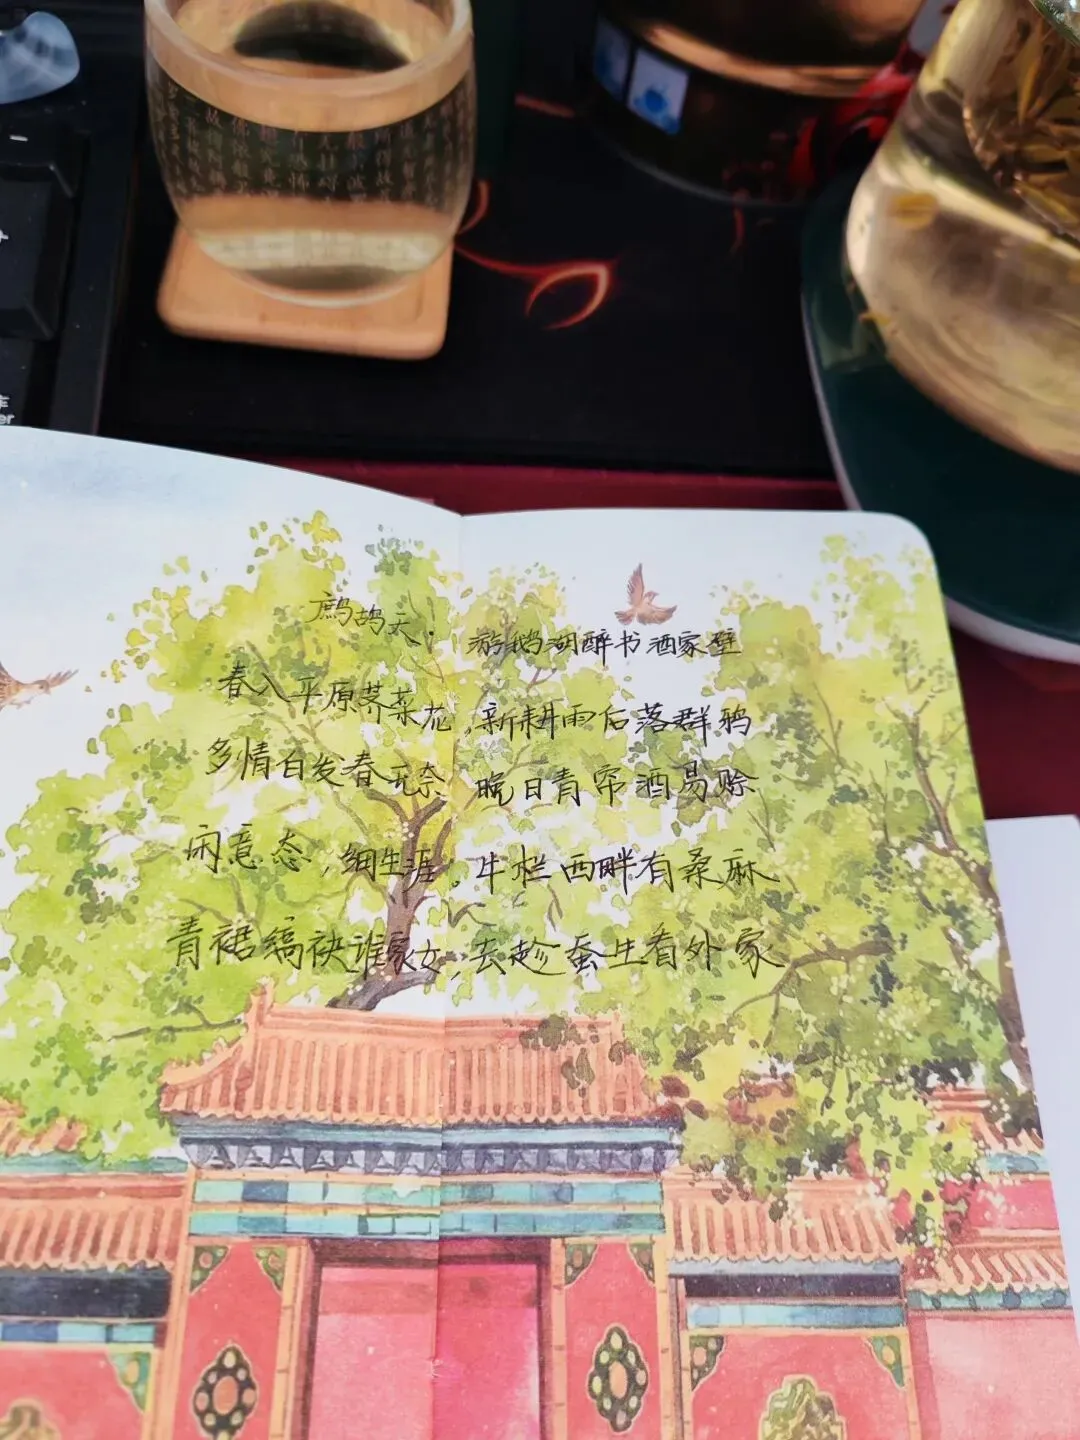 鹧鸪天·游鹅湖醉书酒家壁
春入平原荠菜花,新耕雨后落群鸦
多情白发春无奈 晚日青帘酒易赊
闲意态,细生涯。牛栏西畔有桑麻
青裙缟袂谁家女,去趁蚕生看外家